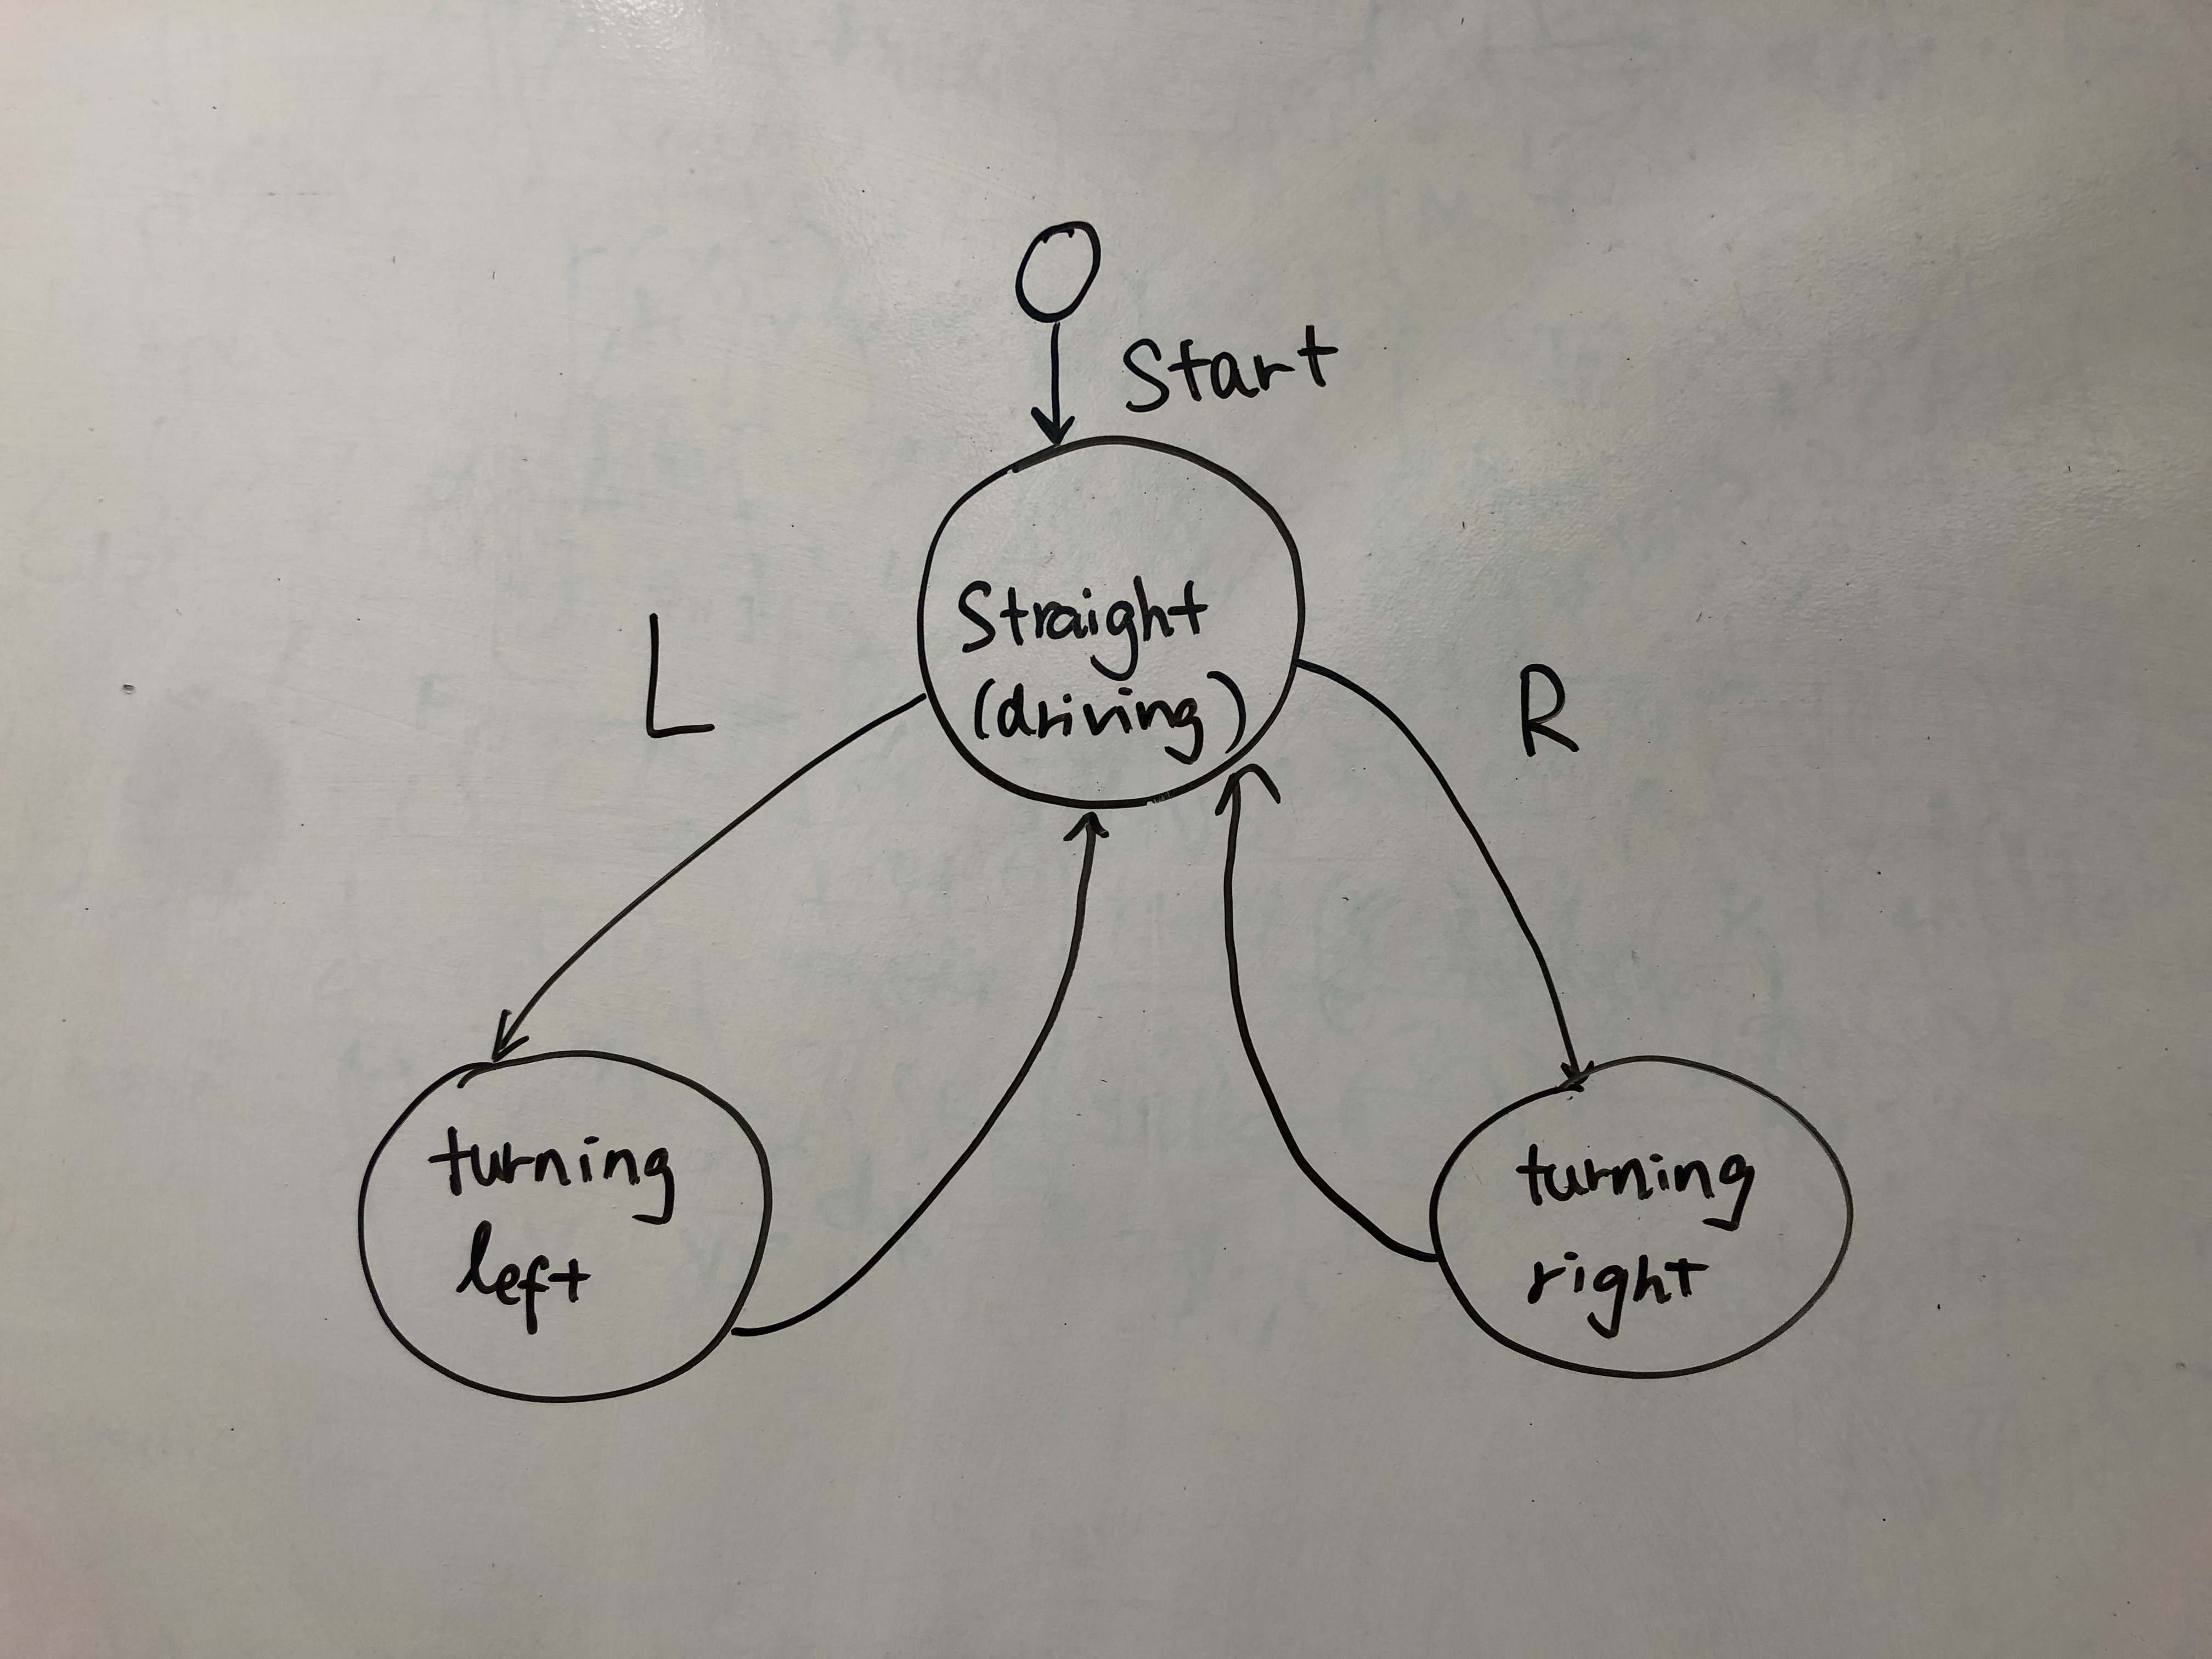 Start
Straight
(driving)
L
R
turning
left
turning
right